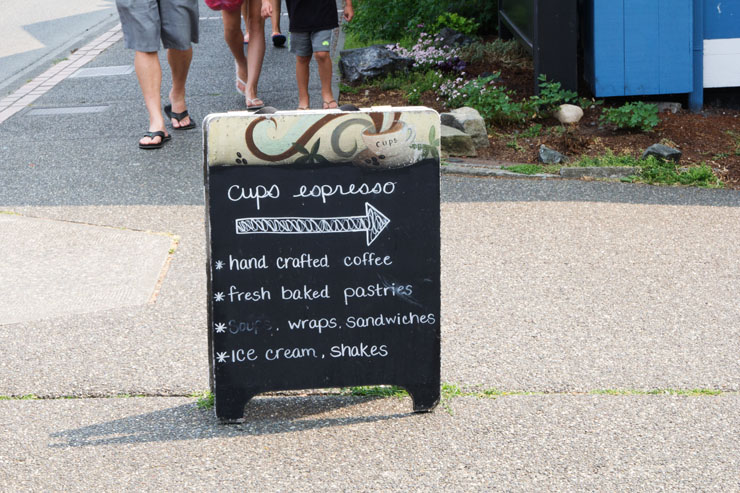 cups
cups espresso
* hand crafted coffee
* fresh baked pastries
* Soups, wraps, sandwiches
* Ice cream, shakes